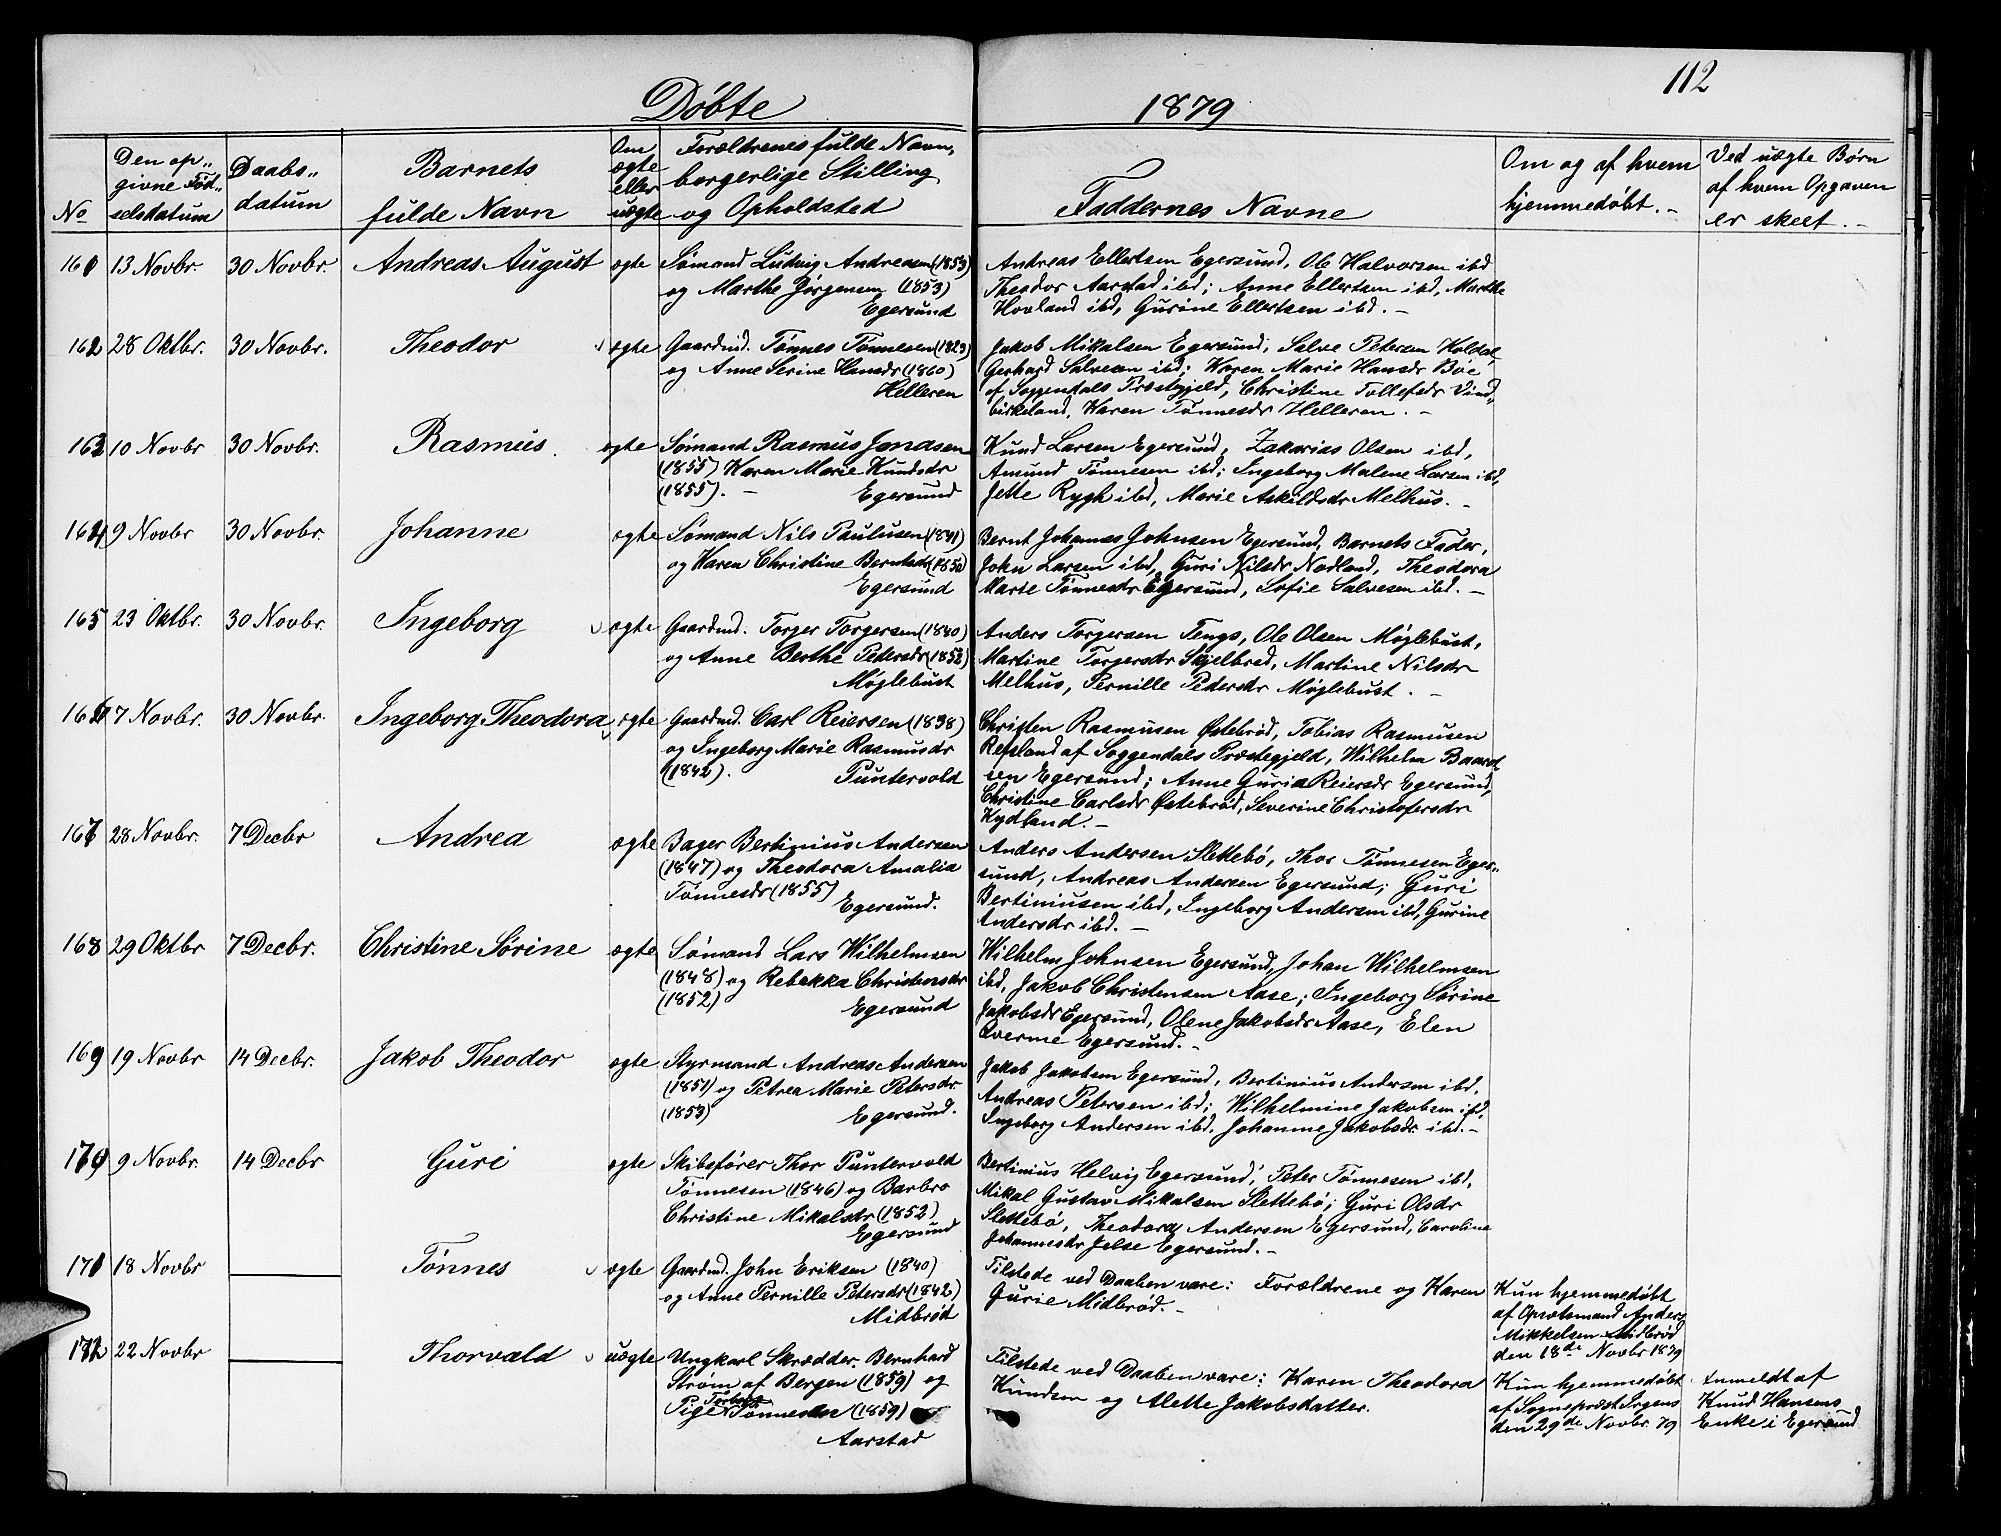 112
Døbte 1879
No
Den op„
givne Fød„
selsdatum
Daabs„
datum
Barnets
fulde Navn
Om
ægte
eller
uægte
Forældrenes fulde Navn,
borgerlige Stilling
og Opholdsted
Faddernes Navne
Om og af hvem
hjemmedøbt. –
Ved uægte Børn
af hvem Opgaven
er skeet. –
161 13 Novbr. 30 Novbr. Andreas August ægte
Sømand Ludvig Andreasen (1853)
og Marthe Jørgensen (1853)
Egersund
Andreas Ellertsen Egersund, Ole Halvorsen ibd
Theodor Aarstad ibd; Anne Ellertsen ibd, Marthe
Hovland ibd, Gurine Ellertsen ibd. –
162 28 Oktbr. 30 Novbr. Theodor ægte
Gaardmd. Tønnes Tønnesen (1823)
og Anne Serine Hansdr (1860)
Helleren
Jakob Mikalsen Egersund, Salve Petersen Koldal,
Gerhard Salvesen ibd; Karen Marie Hansdr Boe
af Soggendals Præstegjeld, Christine Tollefsdr Vind„
birkeland, Karen Tønnesdr Helleren. –
163 10 Novbr 30 Novbr. Rasmus ægte
Sømand Rasmus Jonasen
(1855) Karen Marie Knudsdr
(1855). – Egersund
Knud Larsen Egersund, Zakarias Olsen ibd,
Amund Tønnesen ibd; Ingeborg Malene Larsen ibd,
Jette Rygh ibd, Marie Askildsdr Melhus. –
164 9 Novbr 30 Novbr. Johanne ægte
Sømand Nils Paulusen (1841)
og Karen Christine Berntsdr (1850)
Egersund
Bernt Johannes Johnsen Egersund, Barnets Fader,
John Larsen ibd, Guri Nilsdr Nodland, Theodora
Marte Tønnesdr Egersund, Sofie Salvesen ibd. –
165 23 Oktbr. 30 Novbr. Ingeborg ægte
Gaardmd. Torger Torgersen (1840)
og Anne Berthe Pedersdr (1852)
Møglebust
Anders Torgersen Tengs, Ole Olsen Møglebust,
Martine Torgersdr Skjelbred, Martine Nilsdr
Melhus, Pernille Pedersdr Møglebust. –
166 7 Novbr. 30 Novbr. Ingeborg Theodora ægte
Gaardmd. Carl Reiersen (1838)
og Ingeborg Marie Rasmusdr
(1842). Puntervold
Christen Rasmusen Østebrød, Tobias Rasmusen
Refsland af Soggendals Præstegjeld, Wilhelm Baard„
sen Egersund; Anne Guria Reiersdr Egersund,
Christine Carlsdr Østebrød, Severine Christofersdr
Hydland. –
167 28 Novbr. 7 Decbr Andrea ægte
Bager Bertinius Andersen
(1847) og Theodora Amalia
Tønnesdr (1855)
Egersund.
Anders Andersen Slettebø, Thor Tønnesen Eger„
sund, Andreas Andersen Egersund; Guri
Bertiniusen ibd, Ingeborg Andersen ibd, Gurine
Andersdr ibd. –
168 29 Oktbr 7 Decbr. Christine Sørine ægte
Sømand Lars Wilhelmsen
(1848) og Rebekka Christensdr
(1852) Egersund
Wilhelm Johnsen Egersund, Johan Wilhelmsen
ibd, Jakob Christensen Aase; Ingeborg Sørine
Jakobsdr Egersund, Olene Jakobsdr Aase, Elen
Qverme Egersund. –
169 19 Novbr 14 Decbr. Jakob Theodor ægte
Styrmand Andreas Andersen
(1851) og Petrea Marie Petersdr.
(1853) Egersund.
Jakob Jakobsen Egersund, Bertinius Andersen ibd,
Andreas Petersen ibd; Wilhelmine Jakobsen ibd,
Ingeborg Andersen ibd. Johanne Jakobsdr. ibd. –
170 9 Novbr. 14 Decbr Guri ægte
Skibsfører Thor Puntervold
Tønnesen (1846) og Barbro
Christine Mikalsdr (1852)
Egersund
Bertinius Helvig Egersund, Peter Tønnesen ibd,
Mikal Gustav Mikalsen Slettebø; Guri Olsdr
Slettebø, Theodora Andersen Egersund, Caroline
Johannesdr Jelse Egersund. –
171 18 Novbr Tønnes ægte
Gaardmd. John Eriksen (1840)
og Anne Pernille Petersdr (1842)
Midbrød
Tilstede ved Daaben vare: Forældrene og Karen
Gurie Midbrød. –
Kun hjemmedøbt
af Opsætsmand Anders
Mikkelsen Midbrød
den 18de Novbr 1879
172 22 Novbr Thorvald uægte
Ungkarl Skrædder Bernhard
Strøm af Bergen (1859) og
Pige Tønnesen (1859)
Aarstad
Tilstede ved Daaben vare: Karen Theodora
Knudsen og Alette Jakobsdatter.
Kun hjemmedøbt
af Sognepræst Irgens
den 29de Novbr. 79
Anmeldt af
Knud Hansens
Enke i Egersund